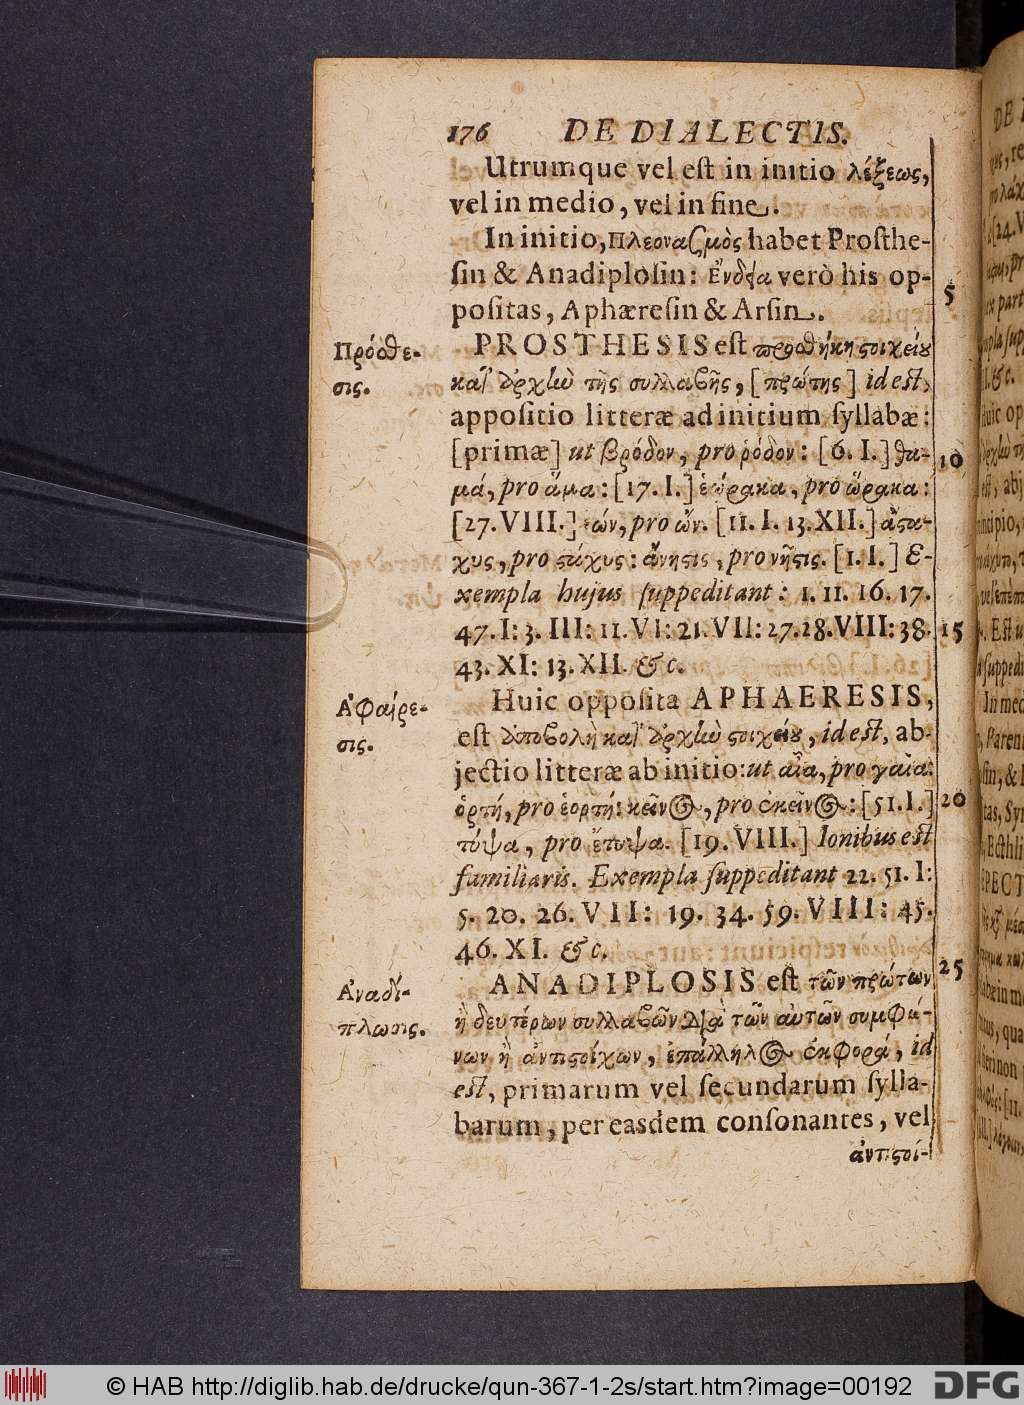 176 DE DIALECTIS.
Utrumque vel est in initio λέξεως,
vel in medio, vel in fine.
In initio, Πλεονασμὸς habet Prosthe-
sin & Anadiplosin: Ἔνδεια verò his op-
positas, Aphæresin & Arsin.
5
Πρόσθε-
σις.
PROSTHESIS est προσθήκη στοιχείου
κατ' ἀρχὴν τῆς συλλαβῆς, [πρώτης] id est,
appositio litteræ ad initium syllabæ:
[primæ] ut βρόδον, pro ρόδον: [6. I.] θα-
10
μά, pro ἅμα: [17. I.] ἑώρακα, pro ὥρακα:
[27. VIII.] ἐών, pro ὤν. [11. I. 13. XII.] ἄστα-
χυς, pro στάχυς: ἄνησις, pro νῆσις. [1. I.] E-
xempla hujus suppeditant: 1. 11. 16. 17.
47. I: 3. III: 11. VI: 21. VII: 27. 28. VIII: 38.
15
43. XI: 13. XII. &c.
Ἀφαίρε-
σις.
Huic opposita APHAERESIS,
est ἀποβολὴ κατ' ἀρχὴν στοιχείου, id est, ab-
jectio litteræ ab initio: ut αἶα, pro γαῖα:
ὁρτή, pro ἑορτή: κεῖνος, pro ἐκεῖνος: [51. I.]
20
τύψα, pro ἔτυψα. [19. VIII.] Ionibus est
familiaris. Exempla suppeditant 22. 51. I:
5. 20. 26. VII: 19. 34. 59. VIII: 45.
46. XI. &c.
Ἀναδί-
πλωσις.
ANADIPLOSIS est τῶν πρώτων
25
ἢ δευτέρων συλλαβῶν διὰ τῶν αὐτῶν συμφώ-
νων ἢ ἀντιστοίχων, ἐπάλληλος ἐκφορά, id
est, primarum vel secundarum sylla-
barum, per easdem consonantes, vel
ἀντιστοί-
© HAB http://diglib.hab.de/drucke/qun-367-1-2s/start.htm?image=00192 DFG